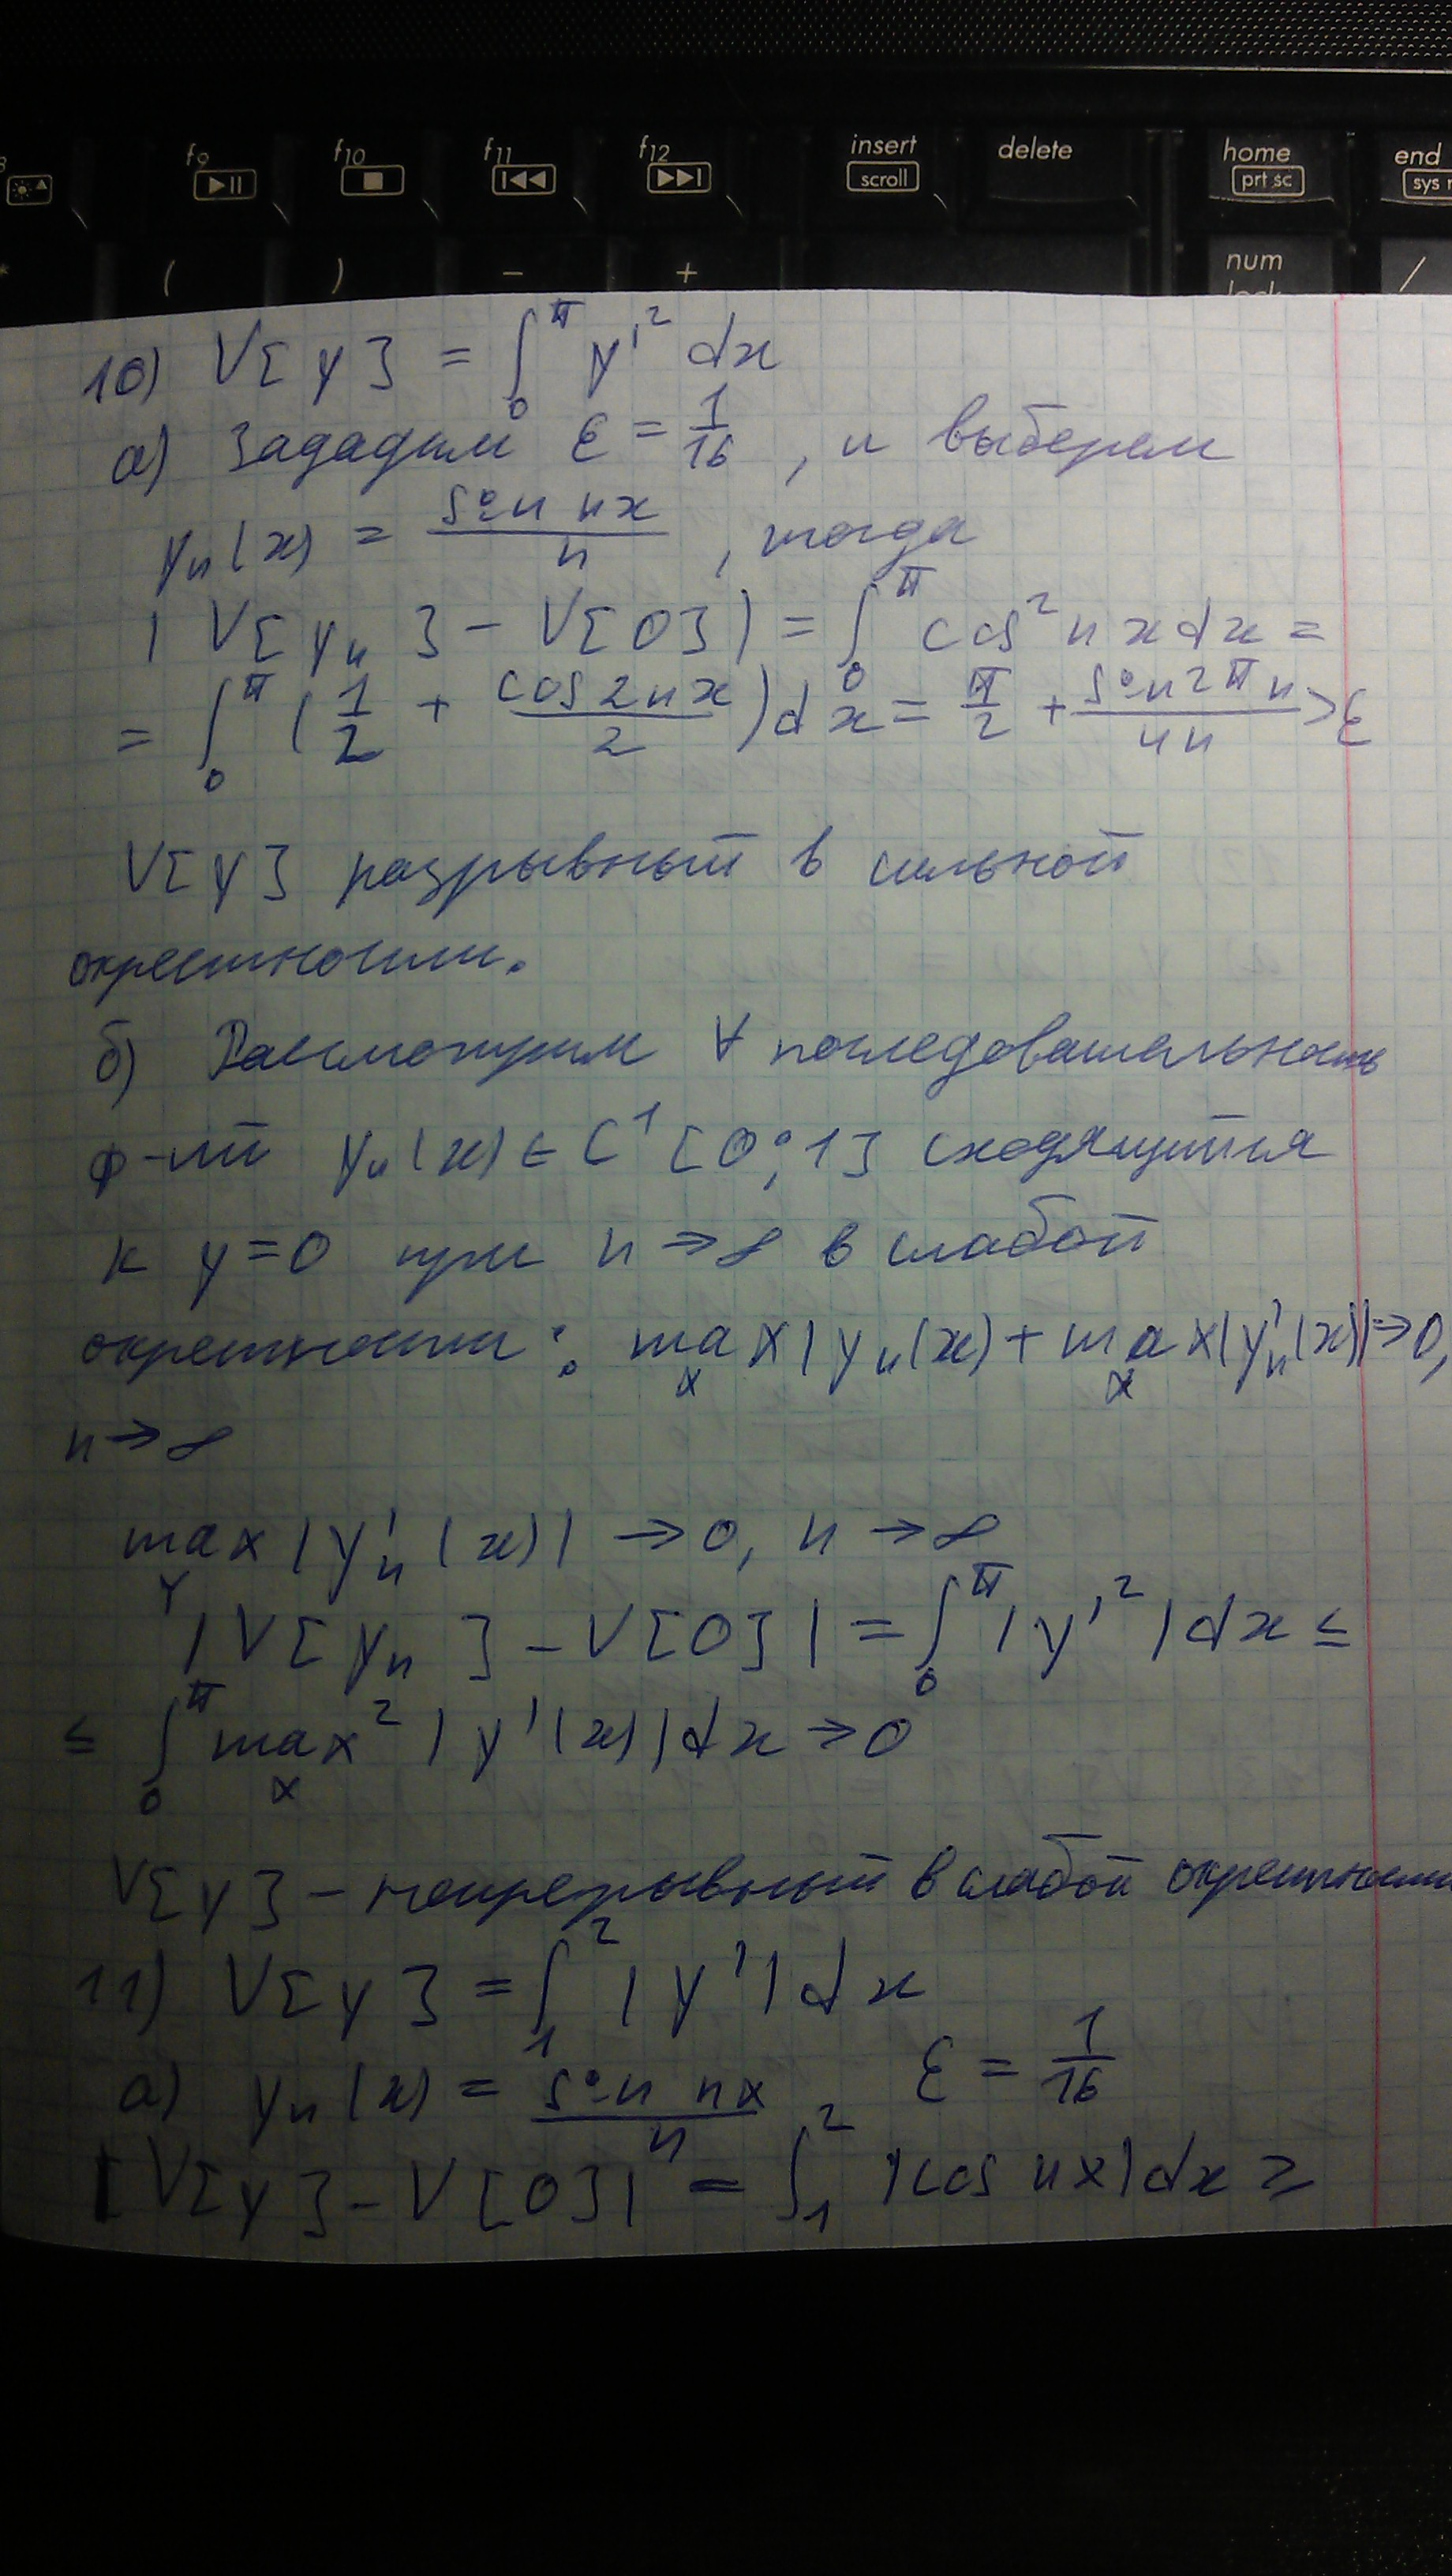 f9 f10 f11 f12 insert delete home end
scroll prt sc sys
( ) - + num /
10) V[y] = ∫₀^π y'² dx
а) Зададим ε = 1/16 , и выберем
yₙ(x) = sin nx / n , тогда
| V[yₙ] - V[0] | = ∫₀^π cos² nx dx =
= ∫₀^π (1/2 + cos 2nx / 2) dx = π/2 + sin 2πn / 4n > ε
V[y] разрывный в сильной
окрестности.
б) Рассмотрим ∀ последовательность
ф-ий yₙ(x) ∈ C¹ [0;1] сходящийся
к y=0 при n→∞ в слабой
окрестности : max_x |yₙ(x) + max_x |y'ₙ(x)| → 0,
n→∞
max_x |y'ₙ(x)| → 0, n → ∞
|V[yₙ] - V[0]| = ∫₀^π |y'²| dx ≤
≤ ∫₀^π max_x² |y'(x)| dx → 0
V[y] - непрерывный в слабой окрестности
11) V[y] = ∫₁² |y'| dx
а) yₙ(x) = sin nx / n , ε = 1/16
|V[y] - V[0]| = ∫₁² |cos nx| dx ≥